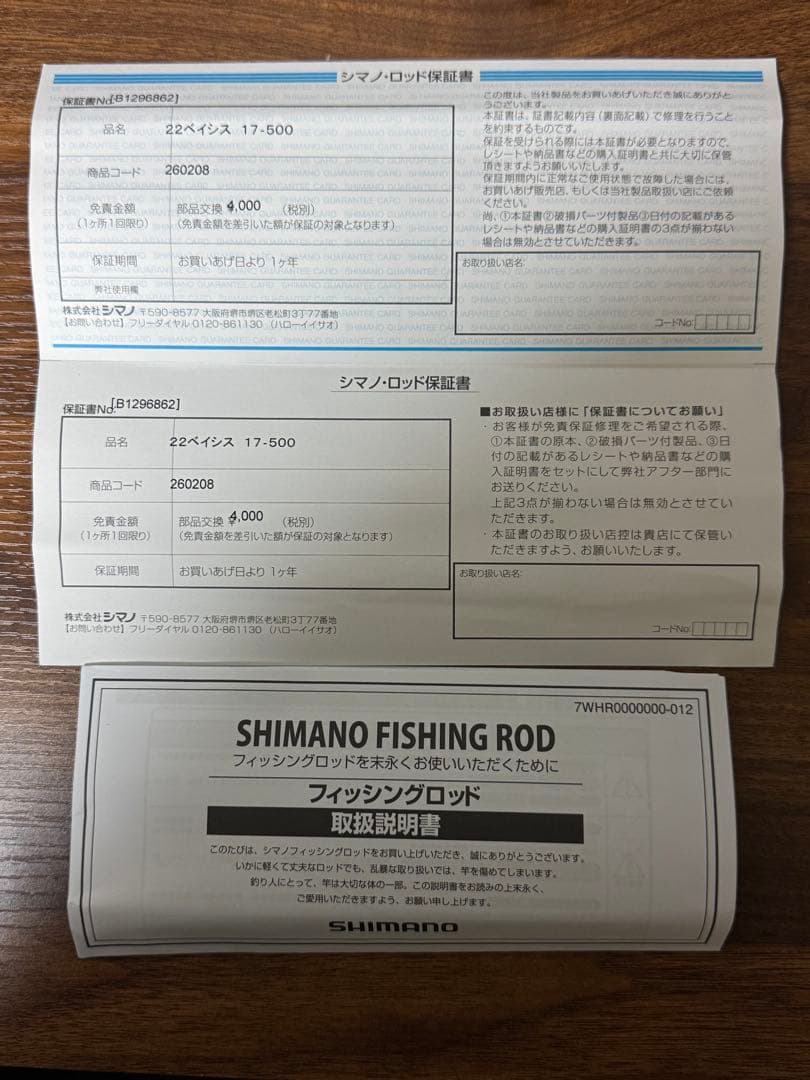 シマノ・ロッド保証書
保証書No.[B1296862]
品名 22ベイシス 17-500
商品コード 260208
免責金額 部品交換 ¥4,000 (税別)
(1ヶ所1回限り) (免責金額を差引いた額が保証の対象となります)
保証期間 お買いあげ日より 1ヶ年
弊社使用欄
株式会社シマノ 〒590-8577 大阪府堺市堺区老松町3丁77番地
【お問い合わせ】フリーダイヤル 0120-861130 (ハローイイサオ)
この度は、当社製品をお買いあげいただき誠にありがと
うございます。
本証書は、証書記載内容(裏面記載)で修理を行うこと
を約束するものです。
保証を受けられる際には本証書が必要となりますので、
レシートや納品書などの購入証明書と共に大切に保管
頂きますようお願いいたします。
保証期間内に正常なご使用状態で故障した場合には、
お買いあげ販売店、もしくは当社製品取扱い店にご依頼
ください。
尚、①本証書②破損パーツ付製品③日付の記載がある
レシートや納品書などの購入証明書の3点が揃わない
場合は無効とさせていただきます。
お取り扱い店名:
コードNo:
シマノ・ロッド保証書
保証書No.[B1296862]
品名 22ベイシス 17-500
商品コード 260208
免責金額 部品交換 ¥4,000 (税別)
(1ヶ所1回限り) (免責金額を差引いた額が保証の対象となります)
保証期間 お買いあげ日より 1ヶ年
株式会社シマノ 〒590-8577 大阪府堺市堺区老松町3丁77番地
【お問い合わせ】フリーダイヤル 0120-861130 (ハローイイサオ)
■お取扱い店様に「保証書についてお願い」
・お客様が免責保証修理をご希望される際、
①本証書の原本、②破損パーツ付製品、③日
付の記載があるレシートや納品書などの購
入証明書をセットにして弊社アフター部門に
お送りください。
上記3点が揃わない場合は無効とさせてい
ただきます。
・本証書のお取り扱い店控は貴店にて保管い
ただきますよう、お願いいたします。
お取扱い店名:
コードNo:
7WHR0000000-012
SHIMANO FISHING ROD
フィッシングロッドを末永くお使いいただくために
フィッシングロッド
取扱説明書
このたびは、シマノフィッシングロッドをお買い上げいただき、誠にありがとうございます。
いかに軽くて丈夫なロッドでも、乱暴な取り扱いでは、竿を傷めてしまいます。
釣り人にとって、竿は大切な体の一部。この説明書をお読みの上末永く、
ご愛用いただきますよう、お願い申し上げます。
SHIMANO